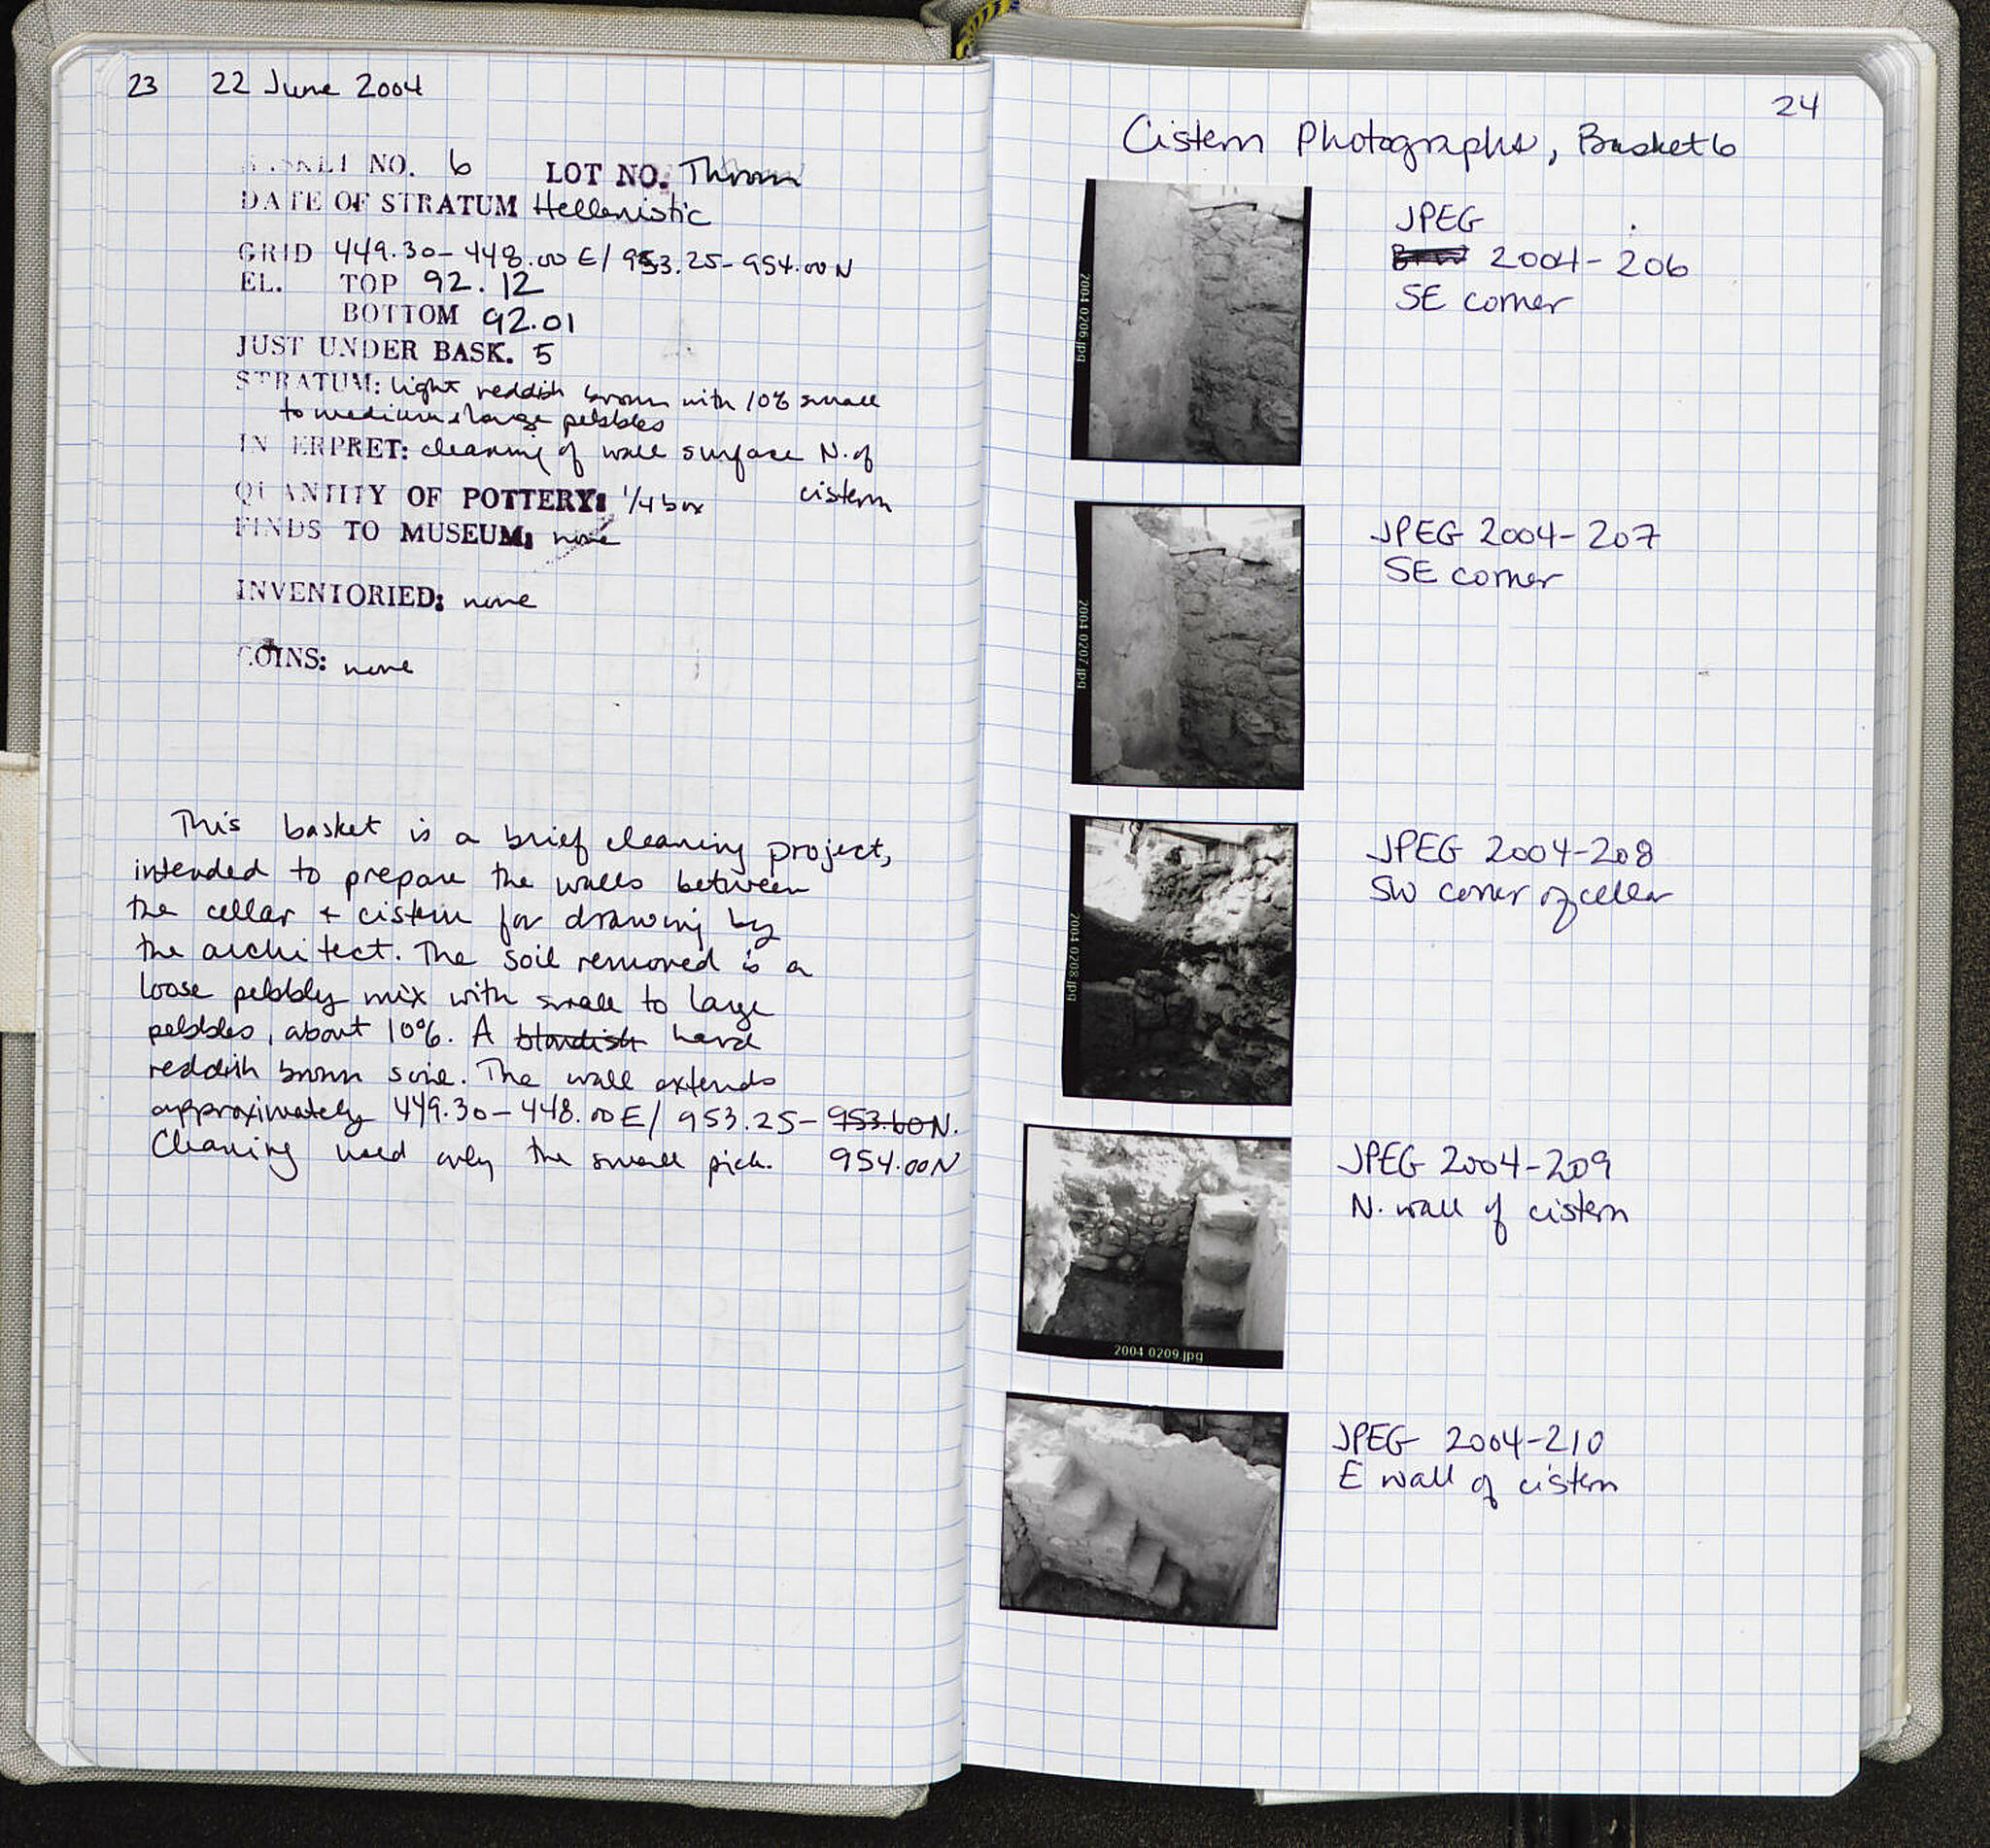 23 22 June 2004
BASKET NO. 6 LOT NO. Thrown
DATE OF STRATUM Hellenistic
GRID 449.30-448.00 E/ 953.25-954.00 N
EL. TOP 92.12
BOTTOM 92.01
JUST UNDER BASK. 5
STRATUM: light reddish brown with 10% small
to medium & large pebbles
INTERPRET: cleaning of wall surface N. of
cistern
QUANTITY OF POTTERY: 1/4 box
FINDS TO MUSEUM: none
INVENTORIED: none
COINS: none
This basket is a brief cleaning project,
intended to prepare the walls between
the cellar + cistern for drawing by
the architect. The soil removed is a
loose pebbly mix with small to large
pebbles, about 10%. A hard
reddish brown soil. The wall extends
approximately 449.30-448.00 E/ 953.25- 953.60 N.
Cleaning used only the small pick. 954.00 N
24
Cistern Photographs, Basket 6
2004 0206.jpg
JPEG
2004-206
SE corner
2004 0207.jpg
JPEG 2004-207
SE corner
2004 0208.jpg
JPEG 2004-208
SW corner of cellar
2004 0209.jpg
JPEG 2004-209
N. wall of cistern
JPEG 2004-210
E wall of cistern